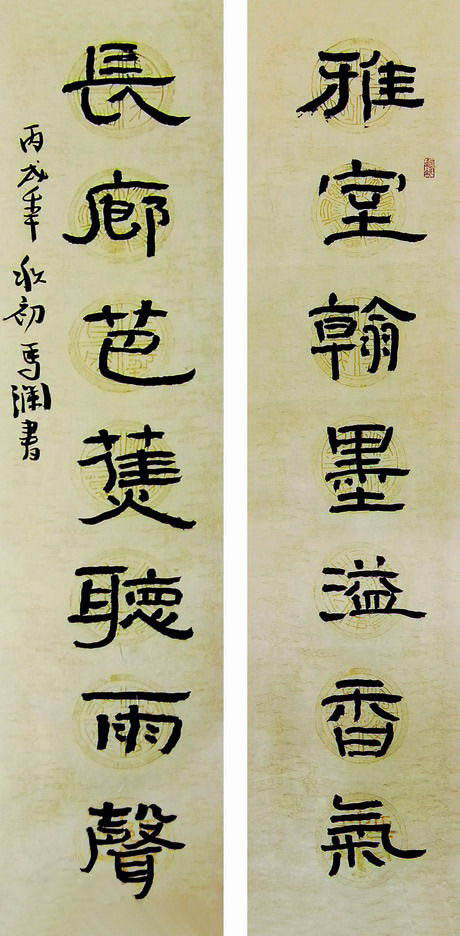 雅堂翰墨溢香气
長廊芭蕉聽雨聲
丙戌年秋初馬瀾書